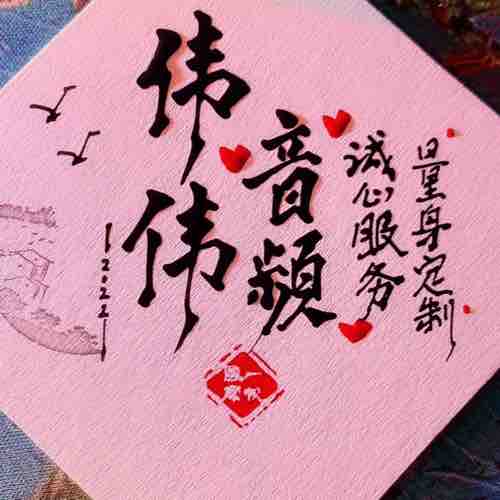 伟伟
音頻
诚心服务
量身定制
2022